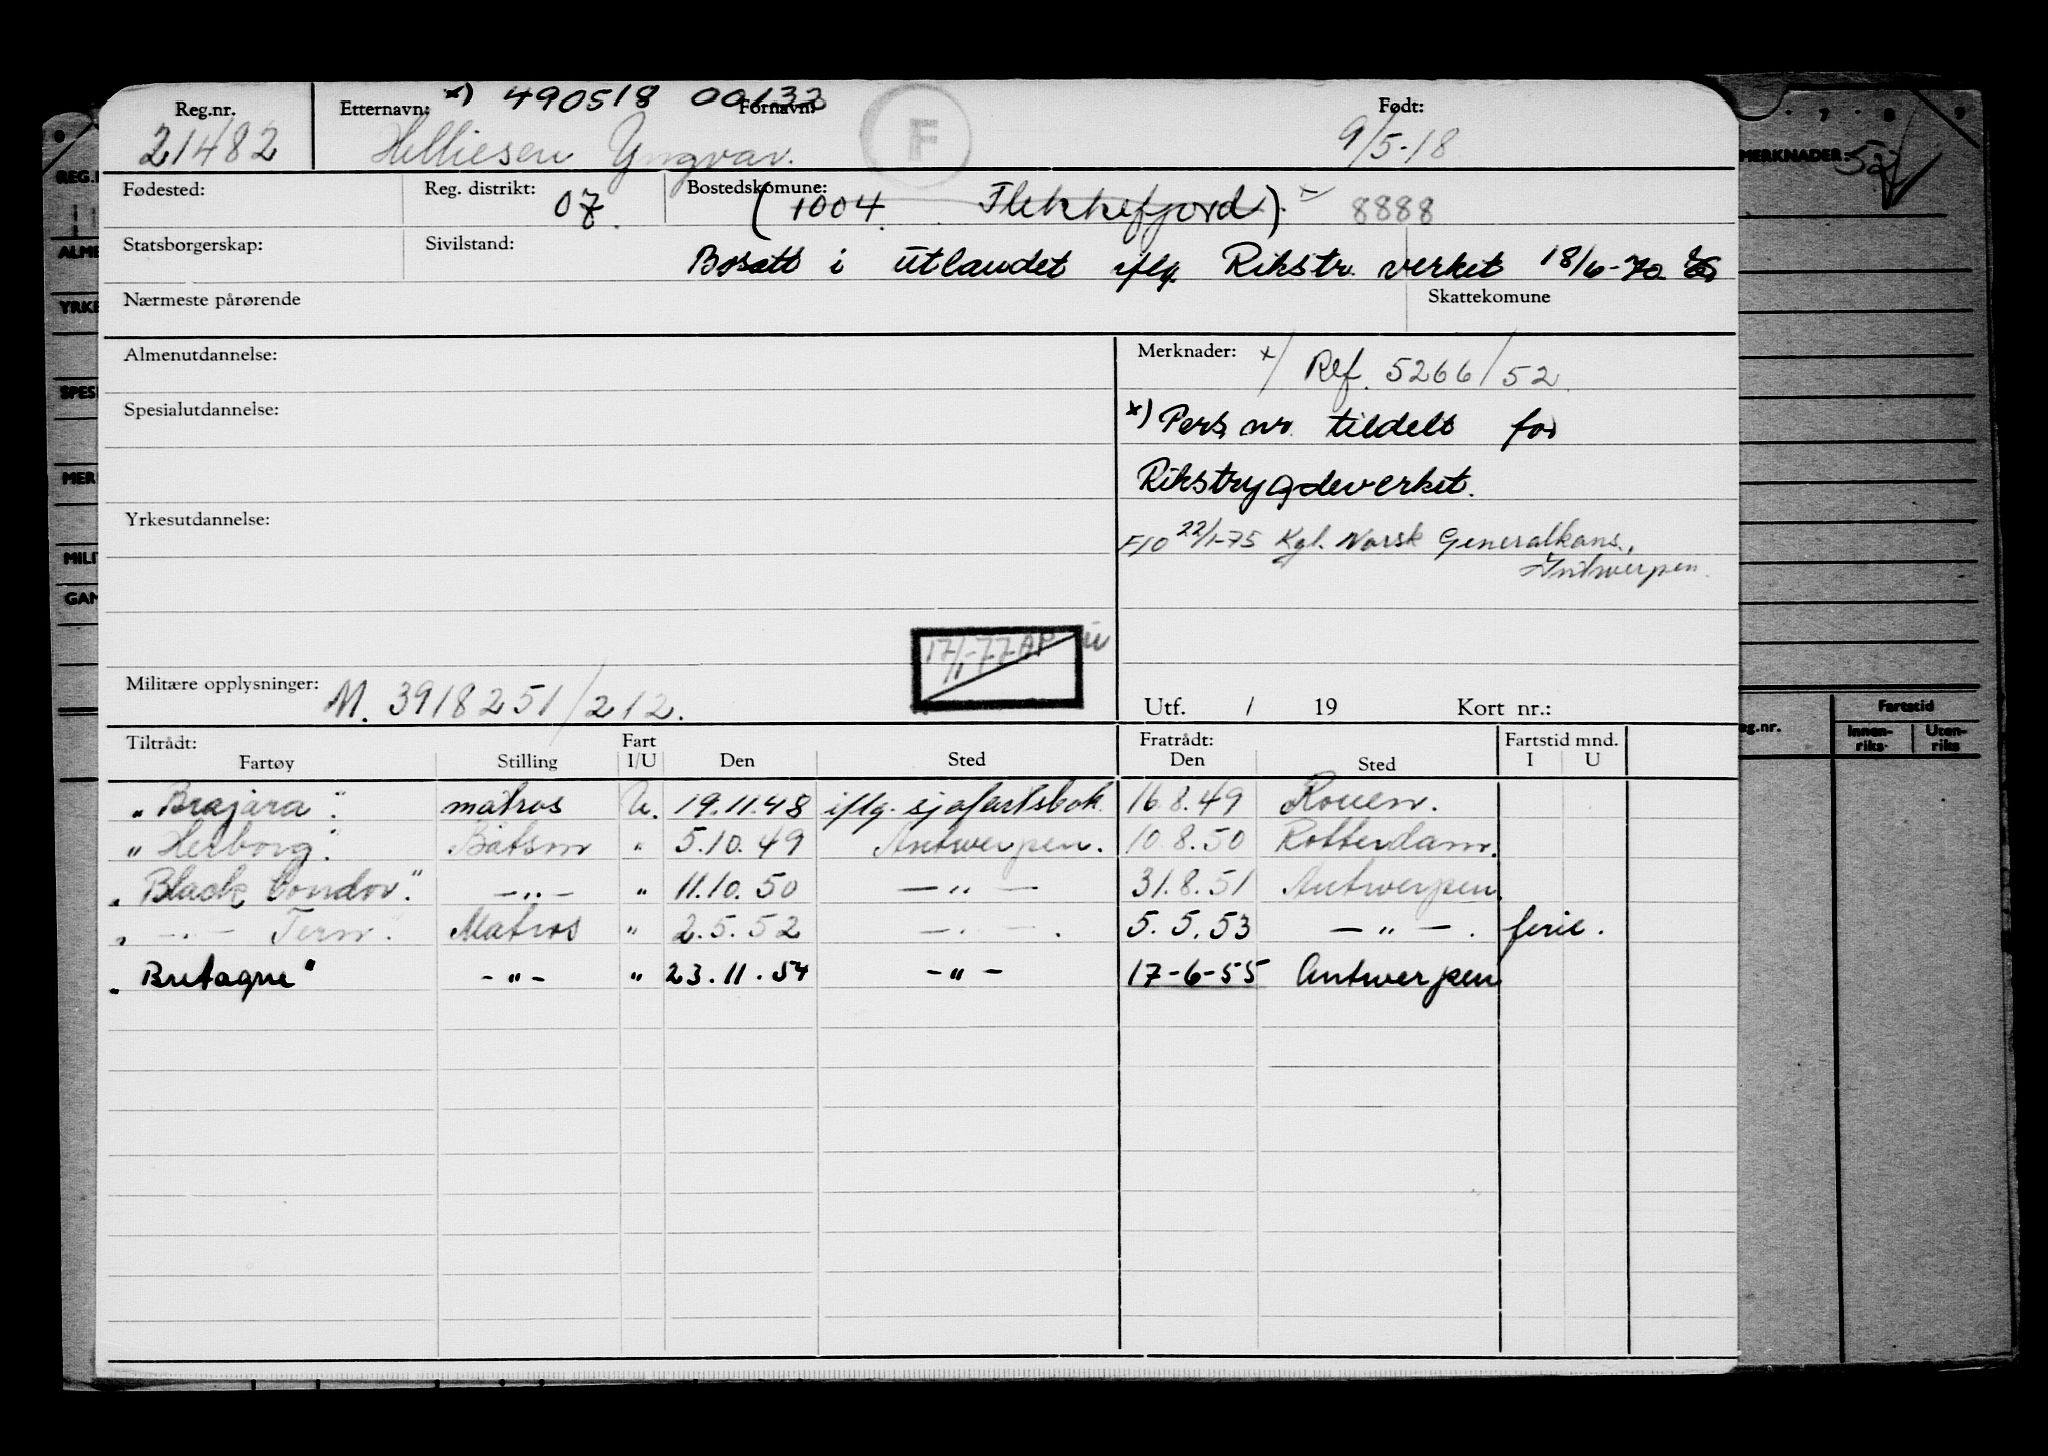 Reg.nr. Etternavn: x) 490518 00133 Fornavn: Født:
21482 Helliesen Yngvar. F 9/5-18
Fødested: Reg. distrikt: 07. Bostedskomune: (1004 Flekkefjord). 8888
Statsborgerskap: Sivilstand: Bosatt i utlandet iflg. Rikstr. verket 18/6-70
Nærmeste pårørende Skattekomune
Almenutdannelse: Merknader: x/ Ref. 5266/52
Spesialutdannelse: x) Pers. nr. tildelt for
Rikstrygdeverket.
Yrkesutdannelse: F/O 22/1-75 Kgl. Norsk Generalkons.,
Antwerpen.
17/1-77 AP
Militære opplysninger: M. 3918251/212. Utf. / 19 Kort nr.:
Tiltrådt: Fart Fratrådt: Fartstid mnd.
Fartøy Stilling I/U Den Sted Den Sted I U
"Brajara". matros U. 19.11.48 iflg. sjøfartsbok 16.8.49 Rouen.
"Herborg". Båtsm " 5.10.49 Antwerpen. 10.8.50 Rotterdam.
"Black Condor". -"- " 11.10.50 -"- 31.8.51 Antwerpen.
" -"- Tern. Matros " 2.5.52 -"-. 5.5.53 -"-. ferie.
"Bretagne" -"- " 23.11.54 -"- 17-6-55 Antwerpen
MERKNADER: 52
7 8 9
REG.
ALME
YRKE
SPESI
MER
MILI
GAM
eg.nr. Fartstid
Innen-
riks- Uten-
riks